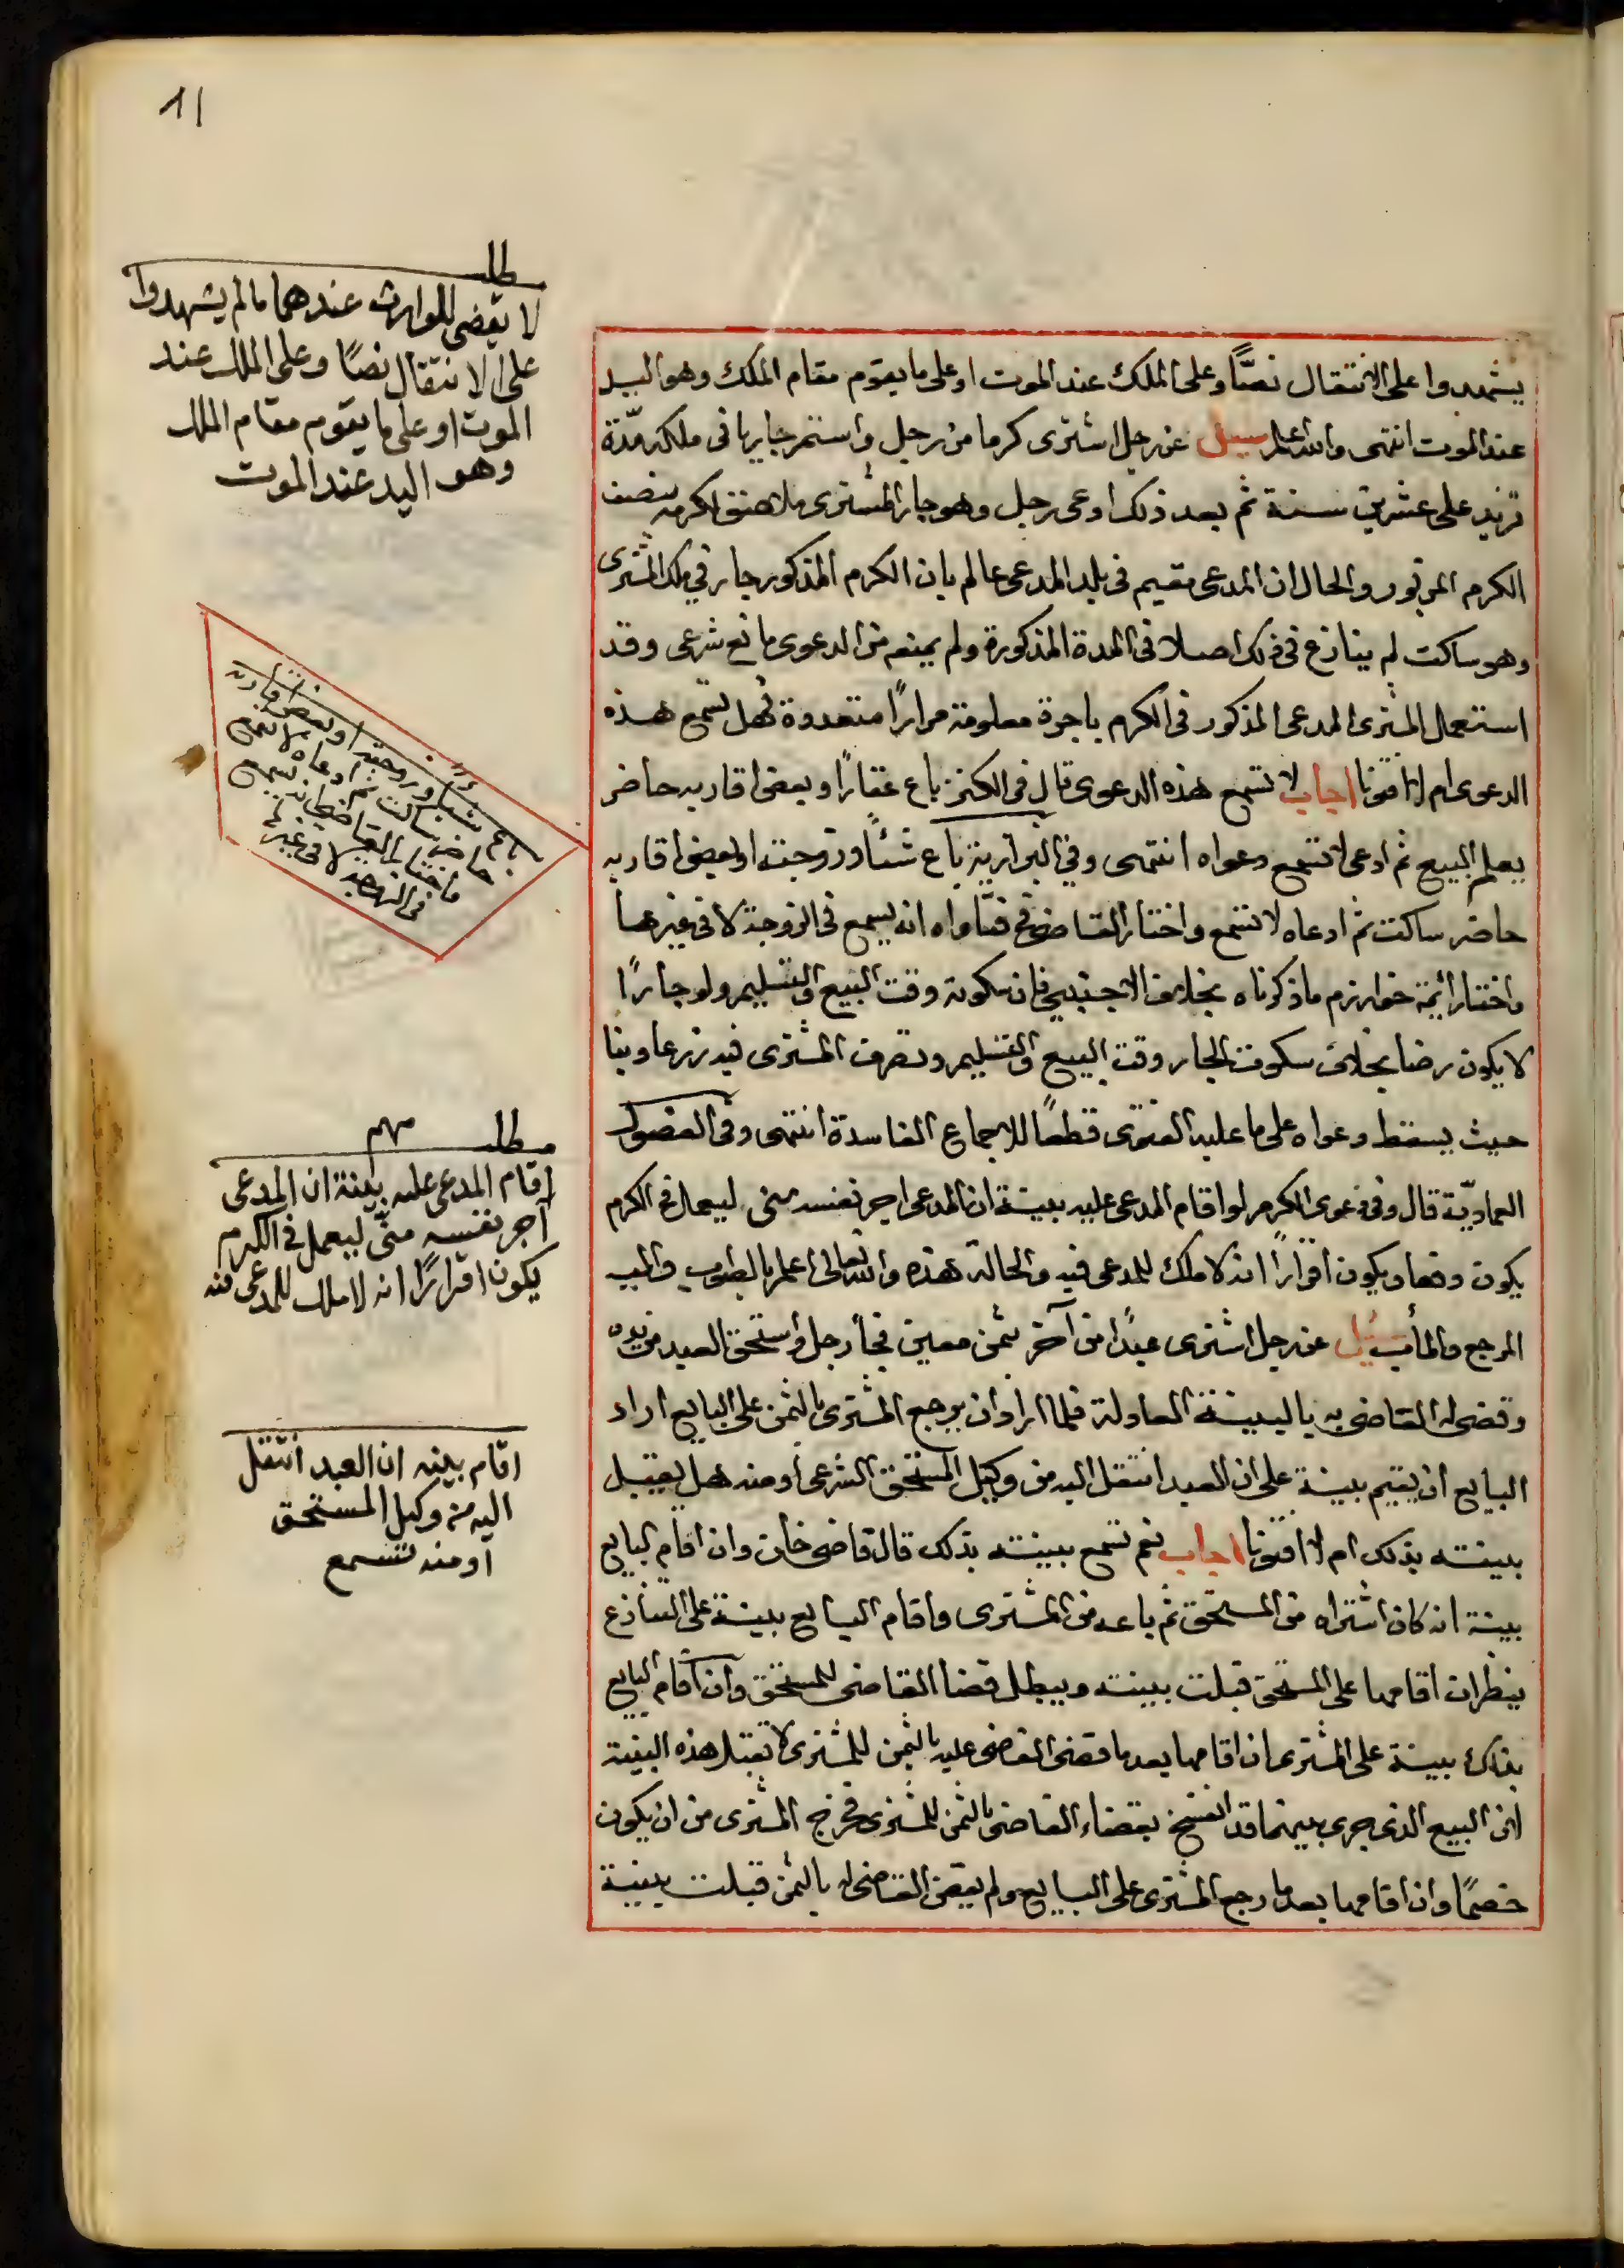 11
يشهدوا على الانتقال نصًّا وعلى الملك عند الموت او على ما يقوم مقام الملك وهو اليد
عند الموت انتهى والله اعلم سيل عن رجل اشترى كرما من رجل واستمر جاريا فى ملكه مدّة
تزيد على عشرين سنة ثم بعد ذلك ادعى رجل وهو جار المشترى ملاصق لكرمه بنصف
الكرم المزبور والحال ان المدعى مقيم فى بلد المدعى عالم بان الكرم المذكور جار في ملك المشترى
وهو ساكت لم ينازع فى ذلك اصلا فى المدة المذكورة ولم يمنعه من الدعوى مانع شرعى وقد
استعمل المشترى المدعى المذكور فى الكرم باجرة معلومة مرارًا متعددة فهل تسمع هذه
الدعوى ام لا افتونا اجاب لا تسمع هذه الدعوى قال فى الكنز باع عقارًا وبعض اقاربه حاضر
يعلم البيع ثم ادعى لا تسمع دعواه انتهى وفي البزازية باع شئًا وزوجته او بعض اقاربه
حاضر ساكت ثم ادعاه لا تسمع واختار القاضى في فتاواه انه يسمع فى الزوجة لا فى غيرها
واختار ائمة خوارزم ما ذكرناه بخلاف الاجنبي فان سكوته وقت البيع والتسليم ولو جارًا
لا يكون رضا بخلاف سكوت الجار وقت البيع والتسليم وتصرف المشترى فيه زرعا وبنا
حيث يسقط دعواه على ما عليه الفتوى قطعًا للاطماع الفاسدة انتهى وفى الفصول
العماديّة قال وفى دعوى الكرم لو اقام المدعى عليه بينة ان المدعى اجر نفسه منى ليعمل في الكرم
يكون دفعا ويكون اقرارًا انه لا ملك للمدعى فيه والحالة هذه والله تعالى اعلم بالصواب واليه
المرجع والمآب سئيل عن رجل اشترى عبدًا من آخر بثمن معين فجأ رجل واستحق العبد من يده
وقضى له القاضى به بالبينة العادلة فلما اراد ان يرجع المشترى بالثمن على البايع اراد
البايع ان يقيم بينة على ان العبد انتقل اليه من وكيل المستحق الشرعى أو منه هل يقبل
بينته بذلك ام لا افتونا اجاب نعم تسمع بينته بذلك قال قاضى خان وان اقام البايع
بينة انه كان اشتراه من المستحق ثم باعه من المشترى واقام البايع بينة على التنازع
ينظر ان اقامها على المستحق قبلت بينته ويبطل قضا القاضى للمستحق وان اقام البايع
بذلك بينة على المشترى ان اقامها بعد ما قضى القاضى عليه بالثمن للمشترى لا تقبل هذه البينة
لان البيع الذى جرى بينهما قد انفسخ بقضاء القاضى بالثمن للمشترى فخرج المشترى من ان يكون
خصمًا وان اقامها بعد ما رجع المشترى على البايع ولم يقض القاضى له بالثمن قبلت بينة
مطلب
لا يقضى للوارث عندهما مالم يشهدوا
على الانتقال نصًا وعلى الملك عند
الموت او على ما يقوم مقام الملك
وهو اليد عند الموت
باع شئًا وزوجته او بعض اقاربه
حاضر ساكت ثم ادعاه لا تسمع
واختار القاضى انه يسمع
فى الزوجة لا فى غيرها
مطلب مهم
اقام المدعى عليه بينة ان المدعى
آجر نفسه منّى ليعمل فى الكرم
يكون اقرارًا انه لا ملك للمدعى فيه
اقام بينه ان العبد انتقل
اليه من وكيل المستحق
أو منه تسمع